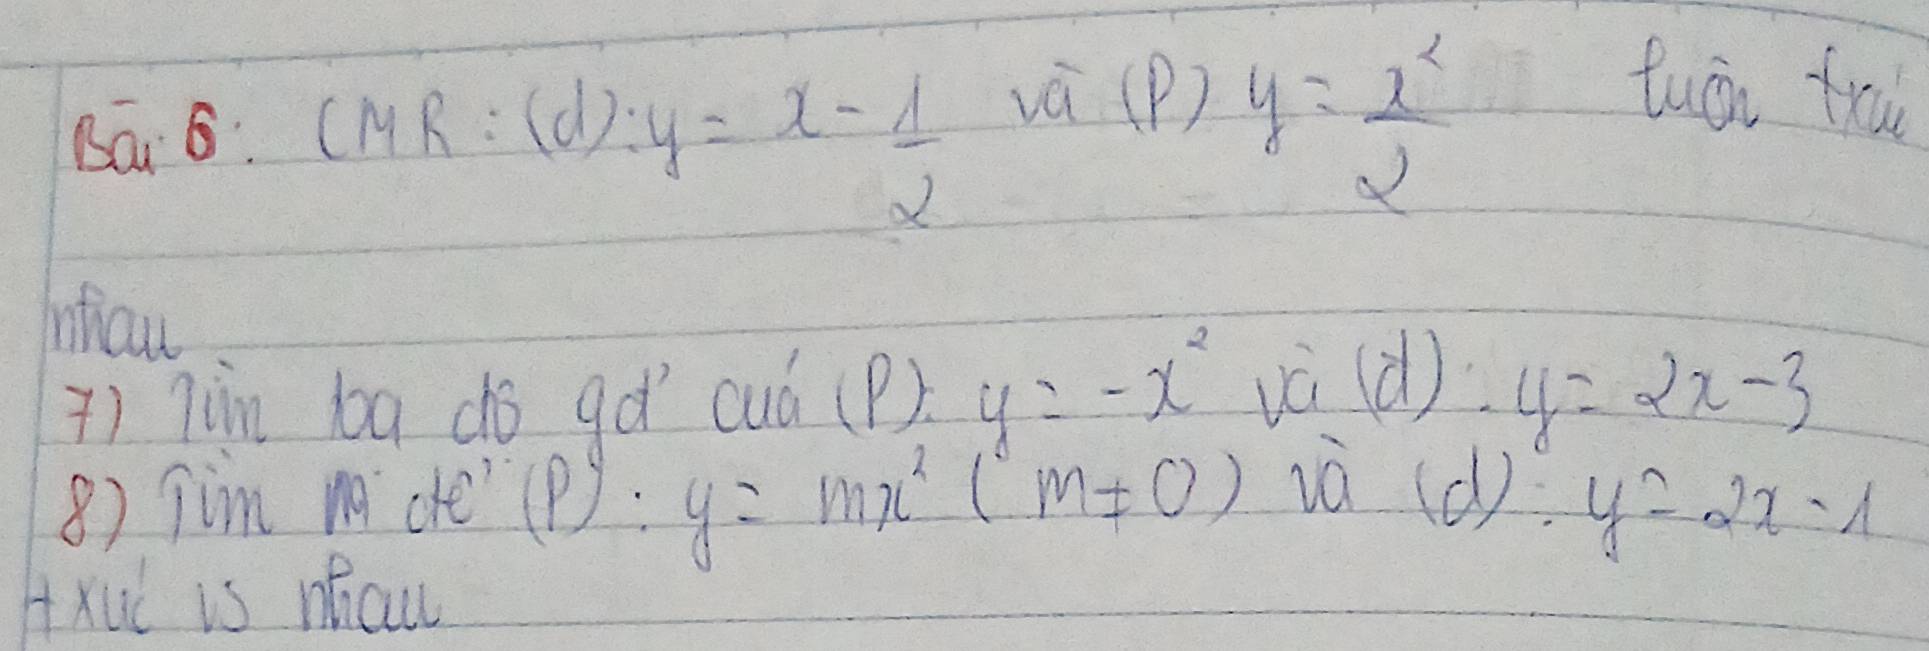 Bài 6: CMR: (d): y = x - 1/2 và (P) y = x²/2 luôn txúc
nhau
7) Tìm tọa độ gđ' của (P): y = -x² và (d): y = 2x - 3
8) Tìm m để (P): y = mx² (m ≠ 0) và (d): y = 2x - 1
txúc vs nhau